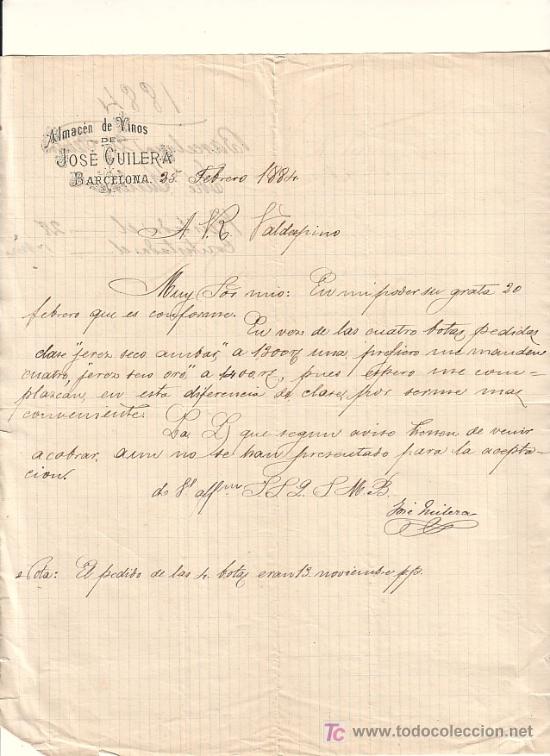 1884
Almacén de Vinos
DE
JOSÉ GUILERA
BARCELONA. 25 Febrero 1884
A. R. Valdespino
Muy Sor mio: En mi poder su grata 20
febrero que es conforme.
En vez de las cuatro botas pedidas
clase "jerez seco ambar" a 1300 rz una, prefiero me manden
cuatro, "jerez seco oro" a 1400 rz, pues espero me com-
plazcan en esta diferencia de clase, por serme mas
conveniente.
Las L/ que segun aviso de venir
a cobrar, aun no se han presentado para la acepta-
cion.
de Vd affmo S S Q S M B.
José Guilera
Nota: El pedido de las 4 botas eran 13 noviembre ppdo.
TC www.todocoleccion.net